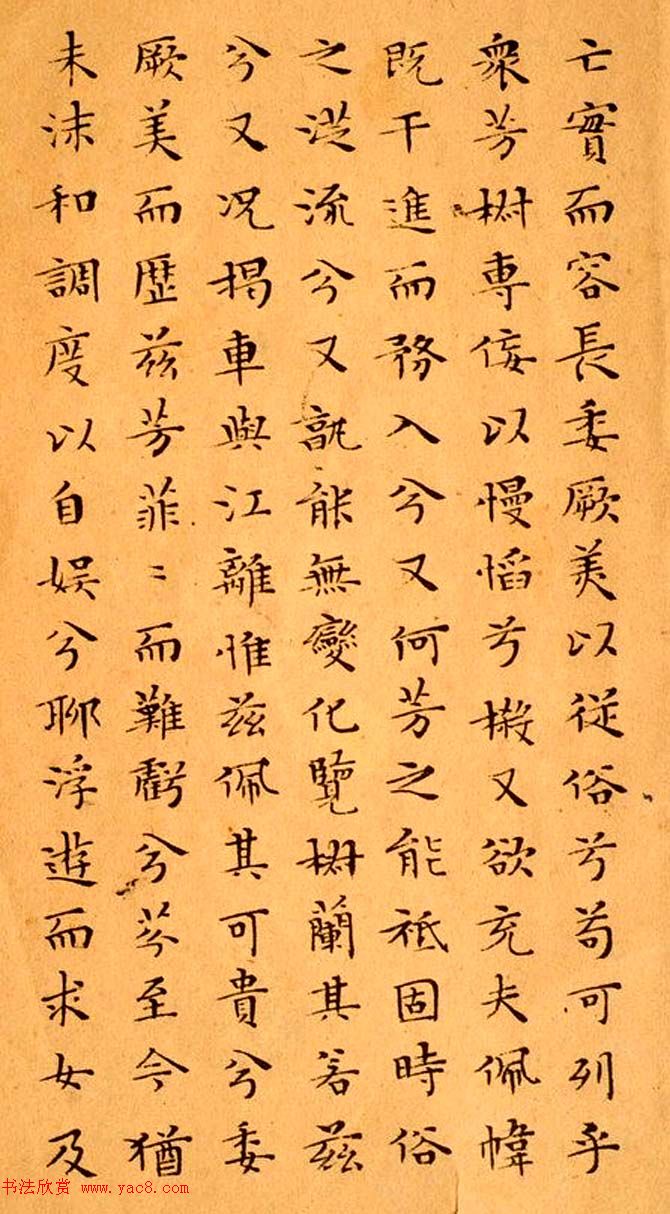 亡實而容長委厥美以從俗兮苟可列乎
衆芳椒專佞以慢慆兮樧又欲充夫佩幃
既干進而務入兮又何芳之能祗固時俗
之從流兮又孰能無變化覽椒蘭其若茲
兮又况揭車與江離惟茲佩其可貴兮委
厥美而歷茲芳菲〻而難虧兮芬至今猶
未沬和調度以自娛兮聊浮遊而求女及
书法欣赏 www.yac8.com